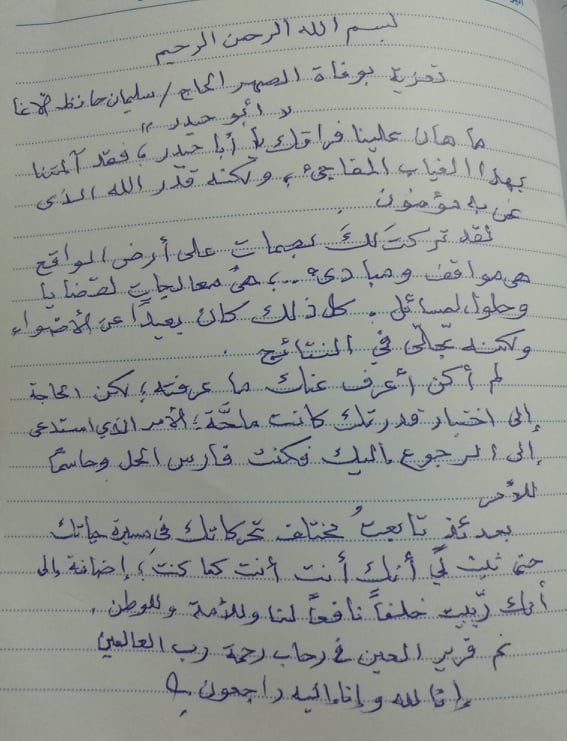 بسم الله الرحمن الرحيم
تعزية بوفاة الصهر الحاج / سليمان حافظ الآغا
" أبو حيدر "
ما هان علينا فراقك يا أبا حيدر ، فقد آلمتنا
بهذا الغياب المفاجئ ، ولكنه قدّر الله الذي
نحن به مؤمنون .
لقد تركتَ لكَ بصمات على أرض الواقع
هي مواقف ومبادئ .. ، هي معالجات لقضايا
وحلول لمسائل . كل ذلك كان بعيداً عن الأضواء
ولكنه تجلّى في النتائج .
لم أكن أعرف عنك ما عرفته ، لكن الحاجة
إلى اختبار قدرتك كانت ملحَّة ؛ الأمر الذي استدعى
إلى الرجوع إليك فكنت فارس الحل وحاسماً
للأمر
بعدئذ تابعتُ مختلف تحركاتك في مسيرة حياتك
حتى ثبت لي أنك أنت أنت كما كنتَ ، إضافة إلى
أنك ربّيت خلفاً نافعاً لنا وللأمة وللوطن .
نم قرير العين في رحاب رحمة رب العالمين
إنا لله وإنا إليه راجعون